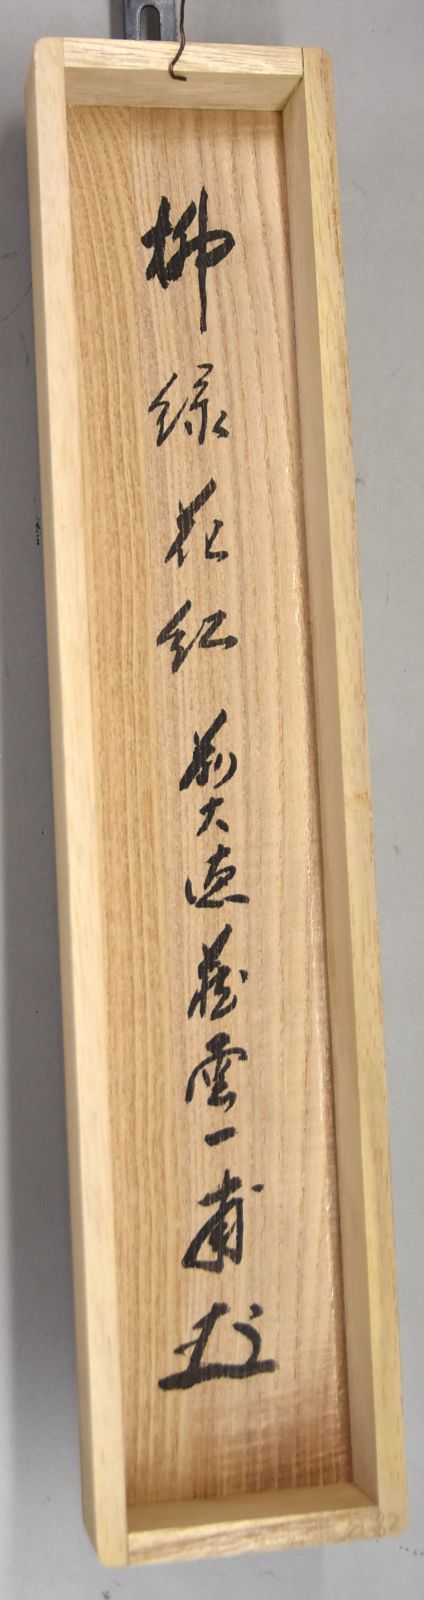 柳緑花紅 前大徳 藏雲一甫